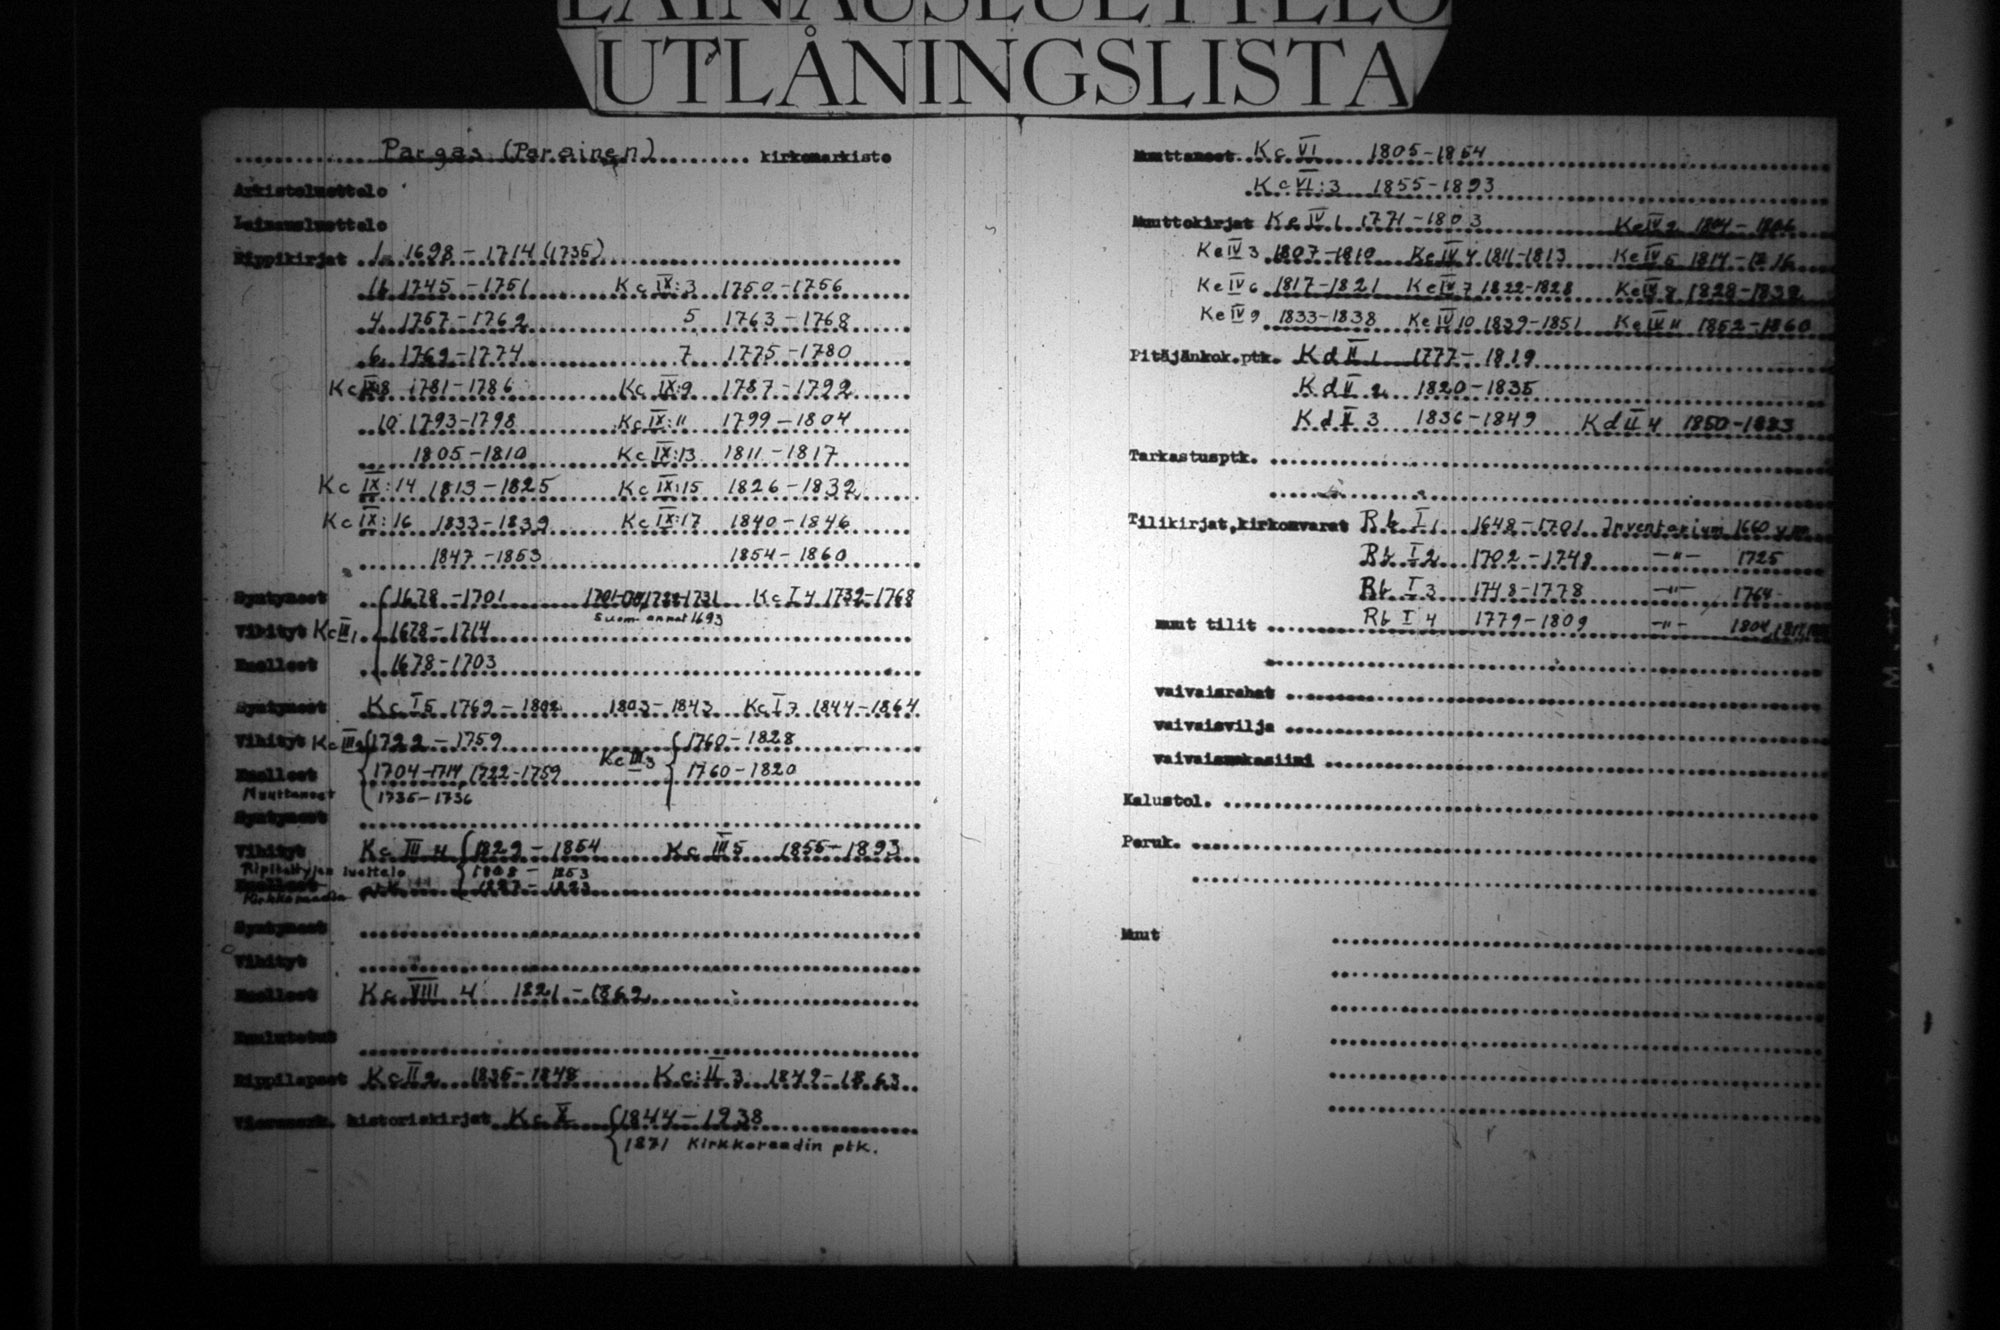 LAINAUSLUETTELO
UTLÅNINGSLISTA
Pargas (Parainen) kirkonarkisto
Arkistoluettelo
Lainausluettelo
Rippikirjat 1 1698-1714 (1735)
1745-1751 Kc IX:3 1750-1756
4 1757-1762 5 1763-1768
6 1769-1774 7 1775-1780
Kc IX:8 1781-1786 Kc IX:9 1787-1792
10 1793-1798 Kc IX:11 1799-1804
1805-1810 Kc IX:13 1811-1817
Kc IX:14 1813-1825 Kc IX:15 1826-1832
Kc IX:16 1833-1839 Kc IX:17 1840-1846
1847-1853 1854-1860
Syntyneet 1678-1701 Kc I 4 1732-1768
Suom annat 1693
Vihityt Kc III 1 1678-1714
Kuolleet 1678-1703
Syntyneet Kc I 5 1769-1802 1803-1843 Kc I 7 1844-1864
Vihityt Kc III 2 1722-1759 Kc III 3 1760-1828
Kuolleet 1704-1714, 1722-1759 1760-1820
Muuttaneet 1735-1736
Syntyneet
Vihityt Kc III 4 1829-1854 Kc III 5 1855-1893
Ripitettyjen luettelo
Kuolleet
Kirkkoraadin ptk
Syntyneet
Vihityt
Kuolleet Kc VIII 4 1821-1862
Kuulutetut
Rippilapset Kc II 2 1835-1848 Kc II 3 1849-1863
Vierasmerk. historiakirjat Kc X 1844-1938
1871 Kirkkoraadin ptk.
Muuttaneet Kc VI 1805-1854
Kc VI:3 1855-1893
Muuttokirjat Ke IV 1 1771-1803 Ke IV 2 1804-1806
Ke IV 3 1807-1810 Ke IV 4 1811-1813 Ke IV 5 1814-1816
Ke IV 6 1817-1821 Ke IV 7 1822-1828 Ke IV 8 1828-1832
Ke IV 9 1833-1838 Ke IV 10 1839-1851 Ke IV 11 1852-1860
Pitäjänkok.ptk. Kd II 1 1777-1819
Kd II 2 1820-1835
Kd II 3 1836-1849 Kd II 4 1850-1883
Tarkastusptk.
Tilikirjat, kirkonvarat Rb I 1 1648-1701 Inventarium 1660 y.m.
Rb I 2 1702-1748 -"- 1725
Rb I 3 1748-1778 -"- 1764
muut tilit Rb I 4 1779-1809 -"- 1804
vaivaisrahat
vaivaisvilja
vaivaismakasiini
Kalustol.
Peruk.
Muut